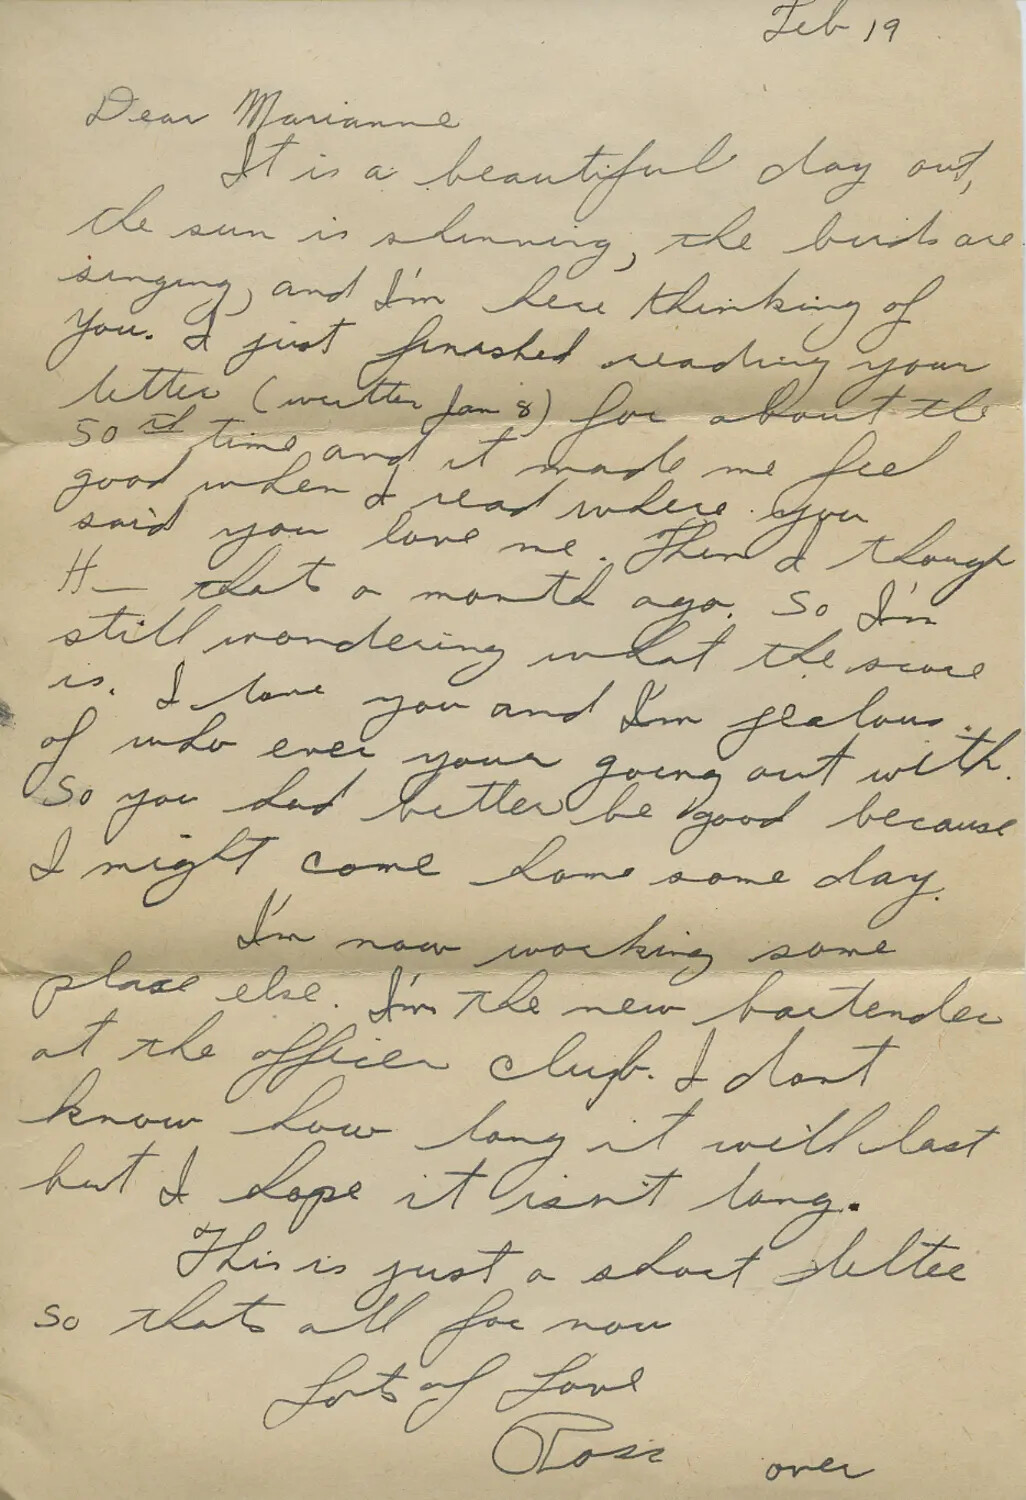 Feb 19
Dear Marianne
It is a beautiful day out,
the sun is shinning, the birds are
singing, and I'm here thinking of
you. I just finished reading your
letter (written Jan 8) for about the
50 th time and it made me feel
good when I read where you
said you love me. Then I though
H— thats a month ago. So I'm
still wondering what the score
is. I love you and I'm jealous
of who ever your going out with.
So you had better be good because
I might come home some day.
I'm now working some
place else. I'm the new bartender
at the officer club. I dont
know how long it will last
but I hope it isn't long.
This is just a short letter
so thats all for now
Lots of Love
Ross
over